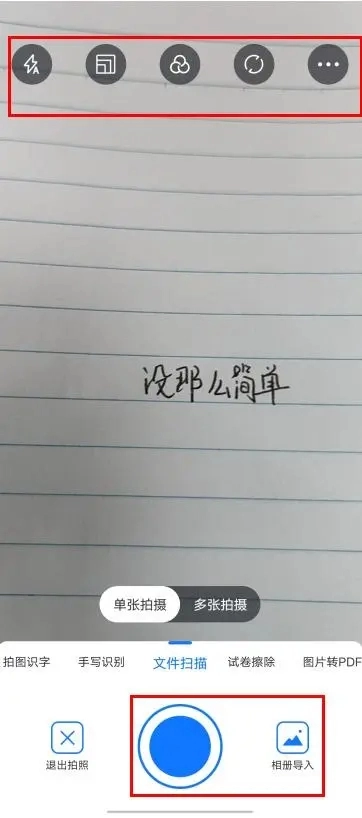 没那么简单
单张拍摄 多张拍摄
拍图识字 手写识别 文件扫描 试卷擦除 图片转PDF
退出拍照 相册导入